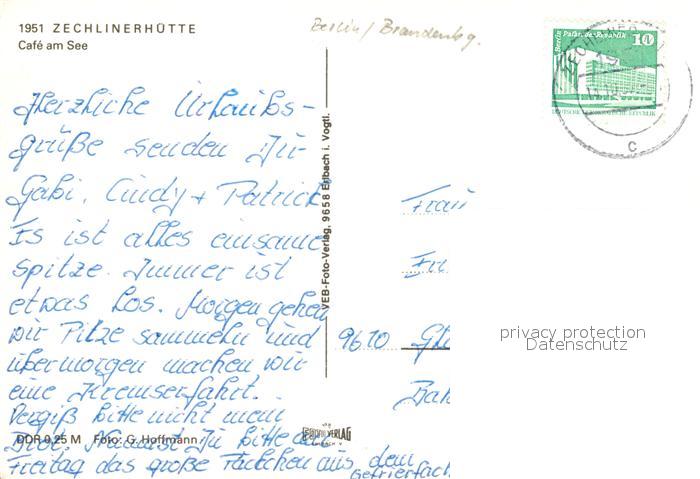 1951 ZECHLINERHÜTTE
Café am See
Berlin/Brandenbg.
Berlin, Palast der Republik 10
DEUTSCHE DEMOKRATISCHE REPUBLIK
C
Herzliche Urlaubs-
grüße senden Dir
Gabi, Cindy + Patrick
Es ist alles einsame
Spitze. Immer ist
etwas los. Morgen gehen
wir Pilze sammeln und
übermorgen machen wir
eine Kremserfahrt.
Vergiß bitte nicht mein
Brot. Nimmst Du bitte am
Freitag das große Päckchen aus dem
Gefrierfach.
VEB-Foto-Verlag, 9658 Erlbach i. Vogtl.
Frau
9610
DDR 0,25 M Foto: G. Hoffmann
FOTO-VERLAG
ERLBACH
privacy protection
Datenschutz